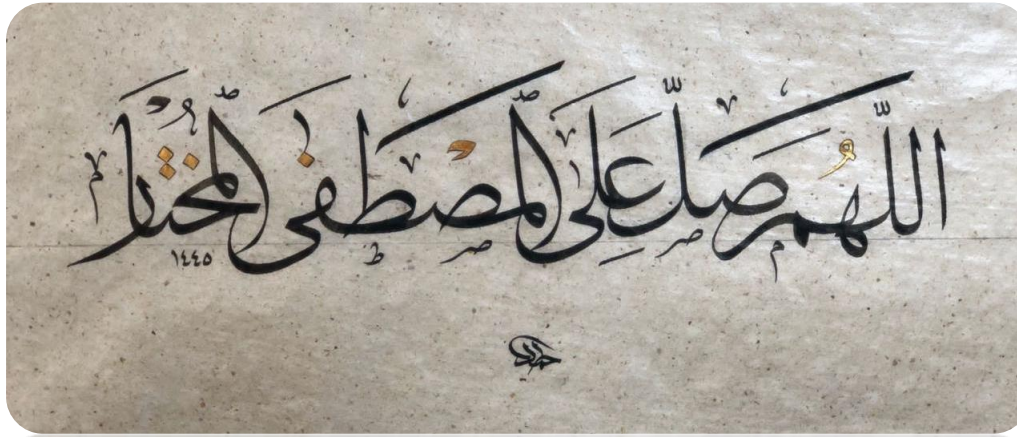 اللهُم صلّ على المصطفى المختار
١٤٤٥